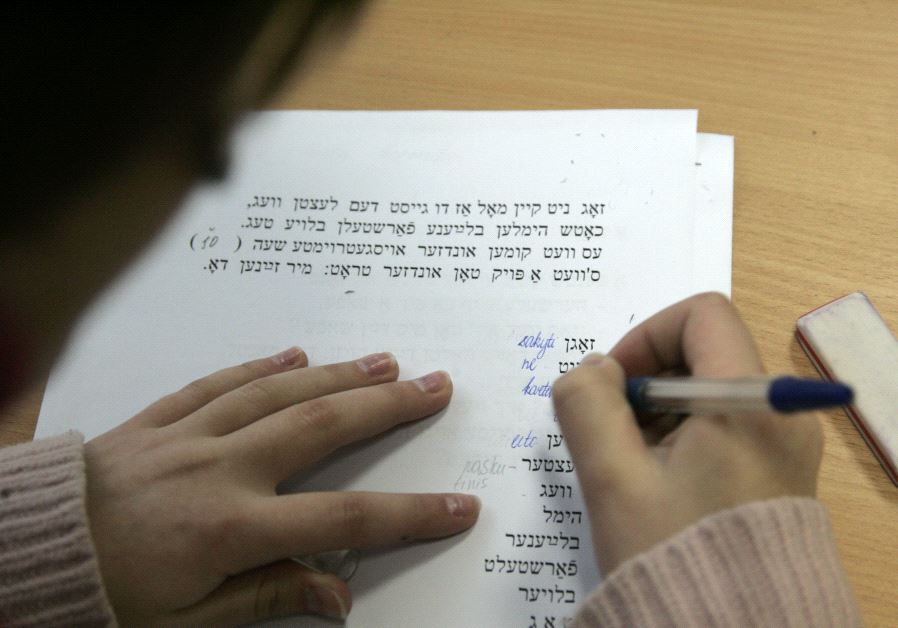 זאָג ניט קיין מאָל אַז דו גייסט דעם לעצטן וועג,
כאָטש הימלען בלײַענע פֿאַרשטעלן בלויע טעג.
עס וועט קומען אונדזער אויסגעטרוימטע שעה (10)
ס'וועט אַ פּויק טאָן אונדזער טראָט: מיר זײַנען דאָ.
זאָגן sakyti
ניט ne
eitc
pasku-
tinis
וועג
הימל
בלײַענער
פֿאַרשטעלט
בלויער